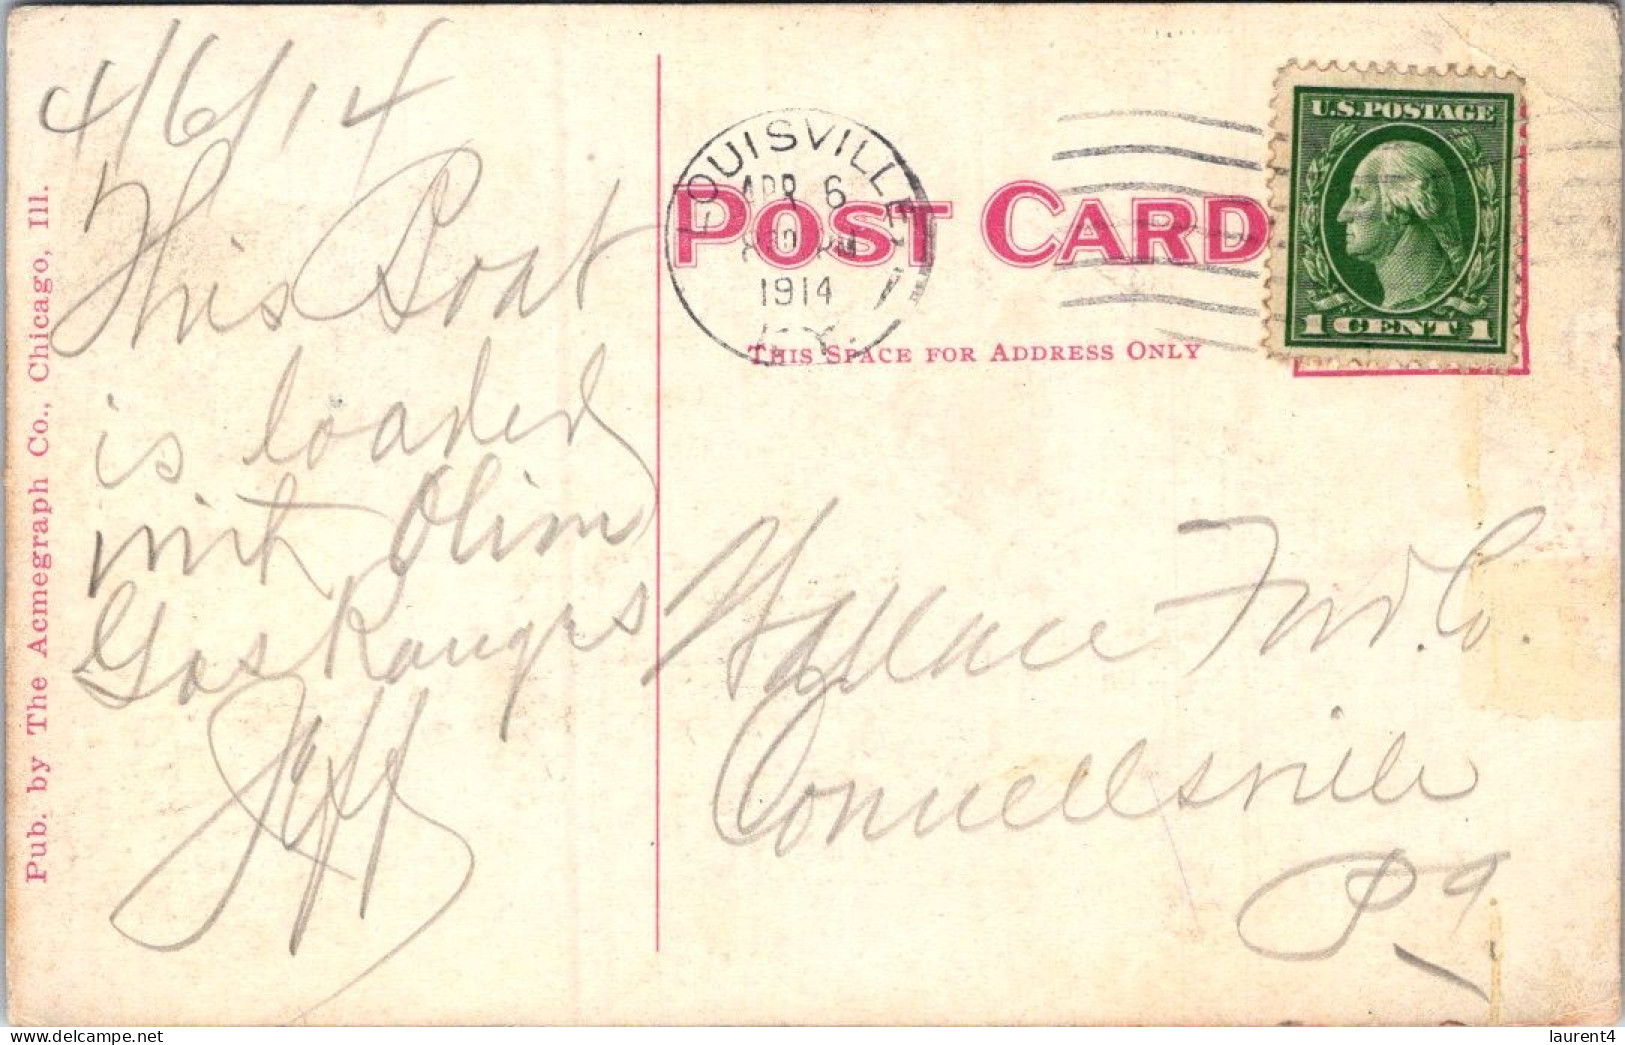 4/6/14
This Boat
is loaded
with Olim
Gas Ranges
Jeff
Pub. by The Acmegraph Co., Chicago, Ill.
LOUISVILLE
APR 6
PM
1914
KY.
POST CARD
THIS SPACE FOR ADDRESS ONLY
U.S. POSTAGE
1 CENT 1
Wallace Furn. Co.
Connellsville
Pa
laurent4